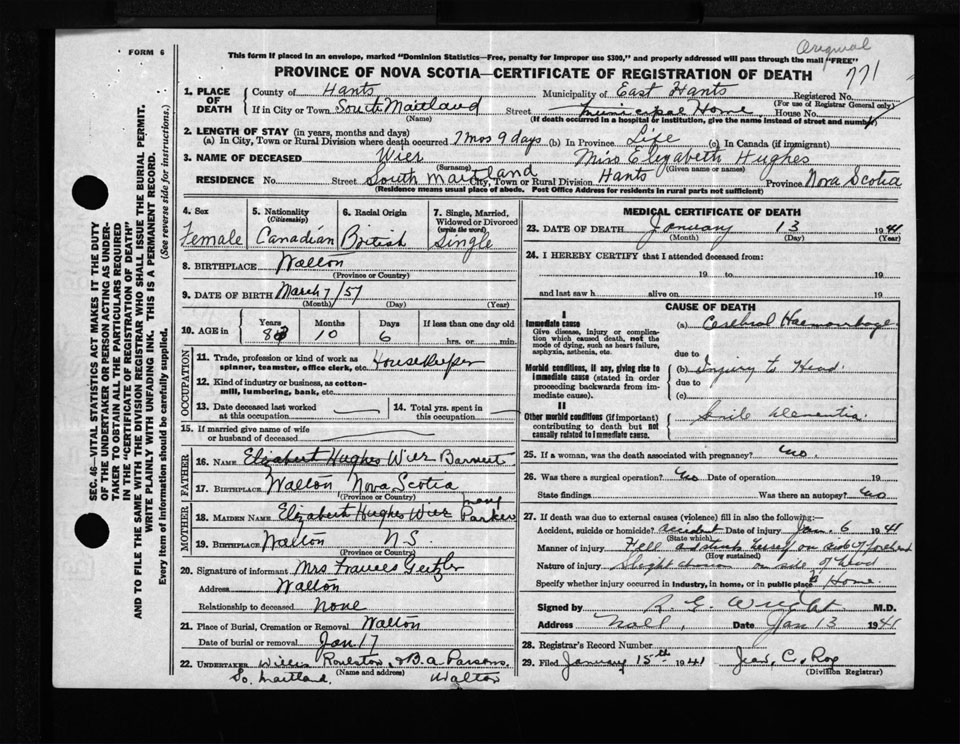 Original
FORM 6
This form if placed in an envelope, marked "Dominion Statistics—Free, penalty for improper use $300," and properly addressed will pass through the mail "FREE"
PROVINCE OF NOVA SCOTIA—CERTIFICATE OF REGISTRATION OF DEATH
771
1. PLACE OF DEATH
County of Hants Municipality of East Hants Registered No.
(For use of Registrar General only)
If in City or Town South Maitland Street Municipal Home House No.
(Name) (If death occurred in a hospital or institution, give the name instead of street and number)
2. LENGTH OF STAY (in years, months and days)
(a) In City, Town or Rural Division where death occurred 7 mos 9 days (b) In Province Life (c) In Canada (if immigrant)
3. NAME OF DECEASED Wier Miss Elizabeth Hughes
(Surname) (Given name or names)
RESIDENCE No. Street South Maitland City, Town or Rural Division Hants Province Nova Scotia
(Residence means usual place of abode. Post Office Address for residents in rural parts not sufficient)
4. Sex Female
5. Nationality (Citizenship) Canadian
6. Racial Origin British
7. Single, Married, Widowed or Divorced (write the word) Single
8. BIRTHPLACE Walton
(Province or Country)
9. DATE OF BIRTH March 7/57
(Month) (Day) (Year)
10. AGE in Years Months Days If less than one day old
10 6 hrs. or min.
OCCUPATION
11. Trade, profession or kind of work as spinner, teamster, office clerk, etc. Housekeeper
12. Kind of industry or business, as cotton-mill, lumbering, bank, etc.
13. Date deceased last worked at this occupation
14. Total yrs. spent in this occupation
15. If married give name of wife or husband of deceased
FATHER
16. NAME Elizabert Hughes Wier Barnett
17. Birthplace Walton Nova Scotia
(Province or Country)
MOTHER
18. MAIDEN NAME Elizabert Hughes Wier Parker
19. Birthplace Walton N.S.
(Province or Country)
20. Signature of informant Mrs Frances Geitzler
Address Walton
Relationship to deceased None
21. Place of Burial, Cremation or Removal Walton
Date of burial or removal Jan 17
22. UNDERTAKER Willis Roulston, & B.A. Parsons,
(Name and address)
So. Maitland. Walton
MEDICAL CERTIFICATE OF DEATH
23. DATE OF DEATH January 13 1941
(Month) (Day) (Year)
24. I HEREBY CERTIFY that I attended deceased from:
19 to 19
and last saw h alive on 19
CAUSE OF DEATH
I
Immediate cause
Give disease, injury or complication which caused death, not the mode of dying, such as heart failure, asphyxia, asthenia, etc.
(a) Cerebral Haemorrhage
due to
Morbid conditions, if any, giving rise to immediate cause (stated in order proceeding backwards from immediate cause).
(b) Injury to Head.
due to
(c)
II
Other morbid conditions (if important) contributing to death but not causally related to immediate cause.
Senile dementia
25. If a woman, was the death associated with pregnancy? No.
26. Was there a surgical operation? No Date of operation 19
State findings Was there an autopsy? No
27. If death was due to external causes (violence) fill in also the following:—
Accident, suicide or homicide? accident Date of injury Jan. 6 1941
(State which)
Manner of injury Fell and struck herself on side of forehead
(How sustained)
Nature of injury Slight abrasion on side of head
Specify whether injury occurred in industry, in home, or in public place Home.
Signed by R. E. Wright M.D.
Address Noel, Date Jan 13 1941
28. Registrar's Record Number
29. Filed January 15th 1941 Jean C. Roy
(Division Registrar)
SEC. 46—VITAL STATISTICS ACT MAKES IT THE DUTY OF THE UNDERTAKER OR PERSON ACTING AS UNDERTAKER TO OBTAIN ALL THE PARTICULARS REQUIRED IN THE "CERTIFICATE OF REGISTRATION OF DEATH" AND TO FILE THE SAME WITH THE DIVISION REGISTRAR WHO SHALL ISSUE THE BURIAL PERMIT.
WRITE PLAINLY WITH UNFADING INK. THIS IS A PERMANENT RECORD.
Every item of information should be carefully supplied. (See reverse side for instructions.)